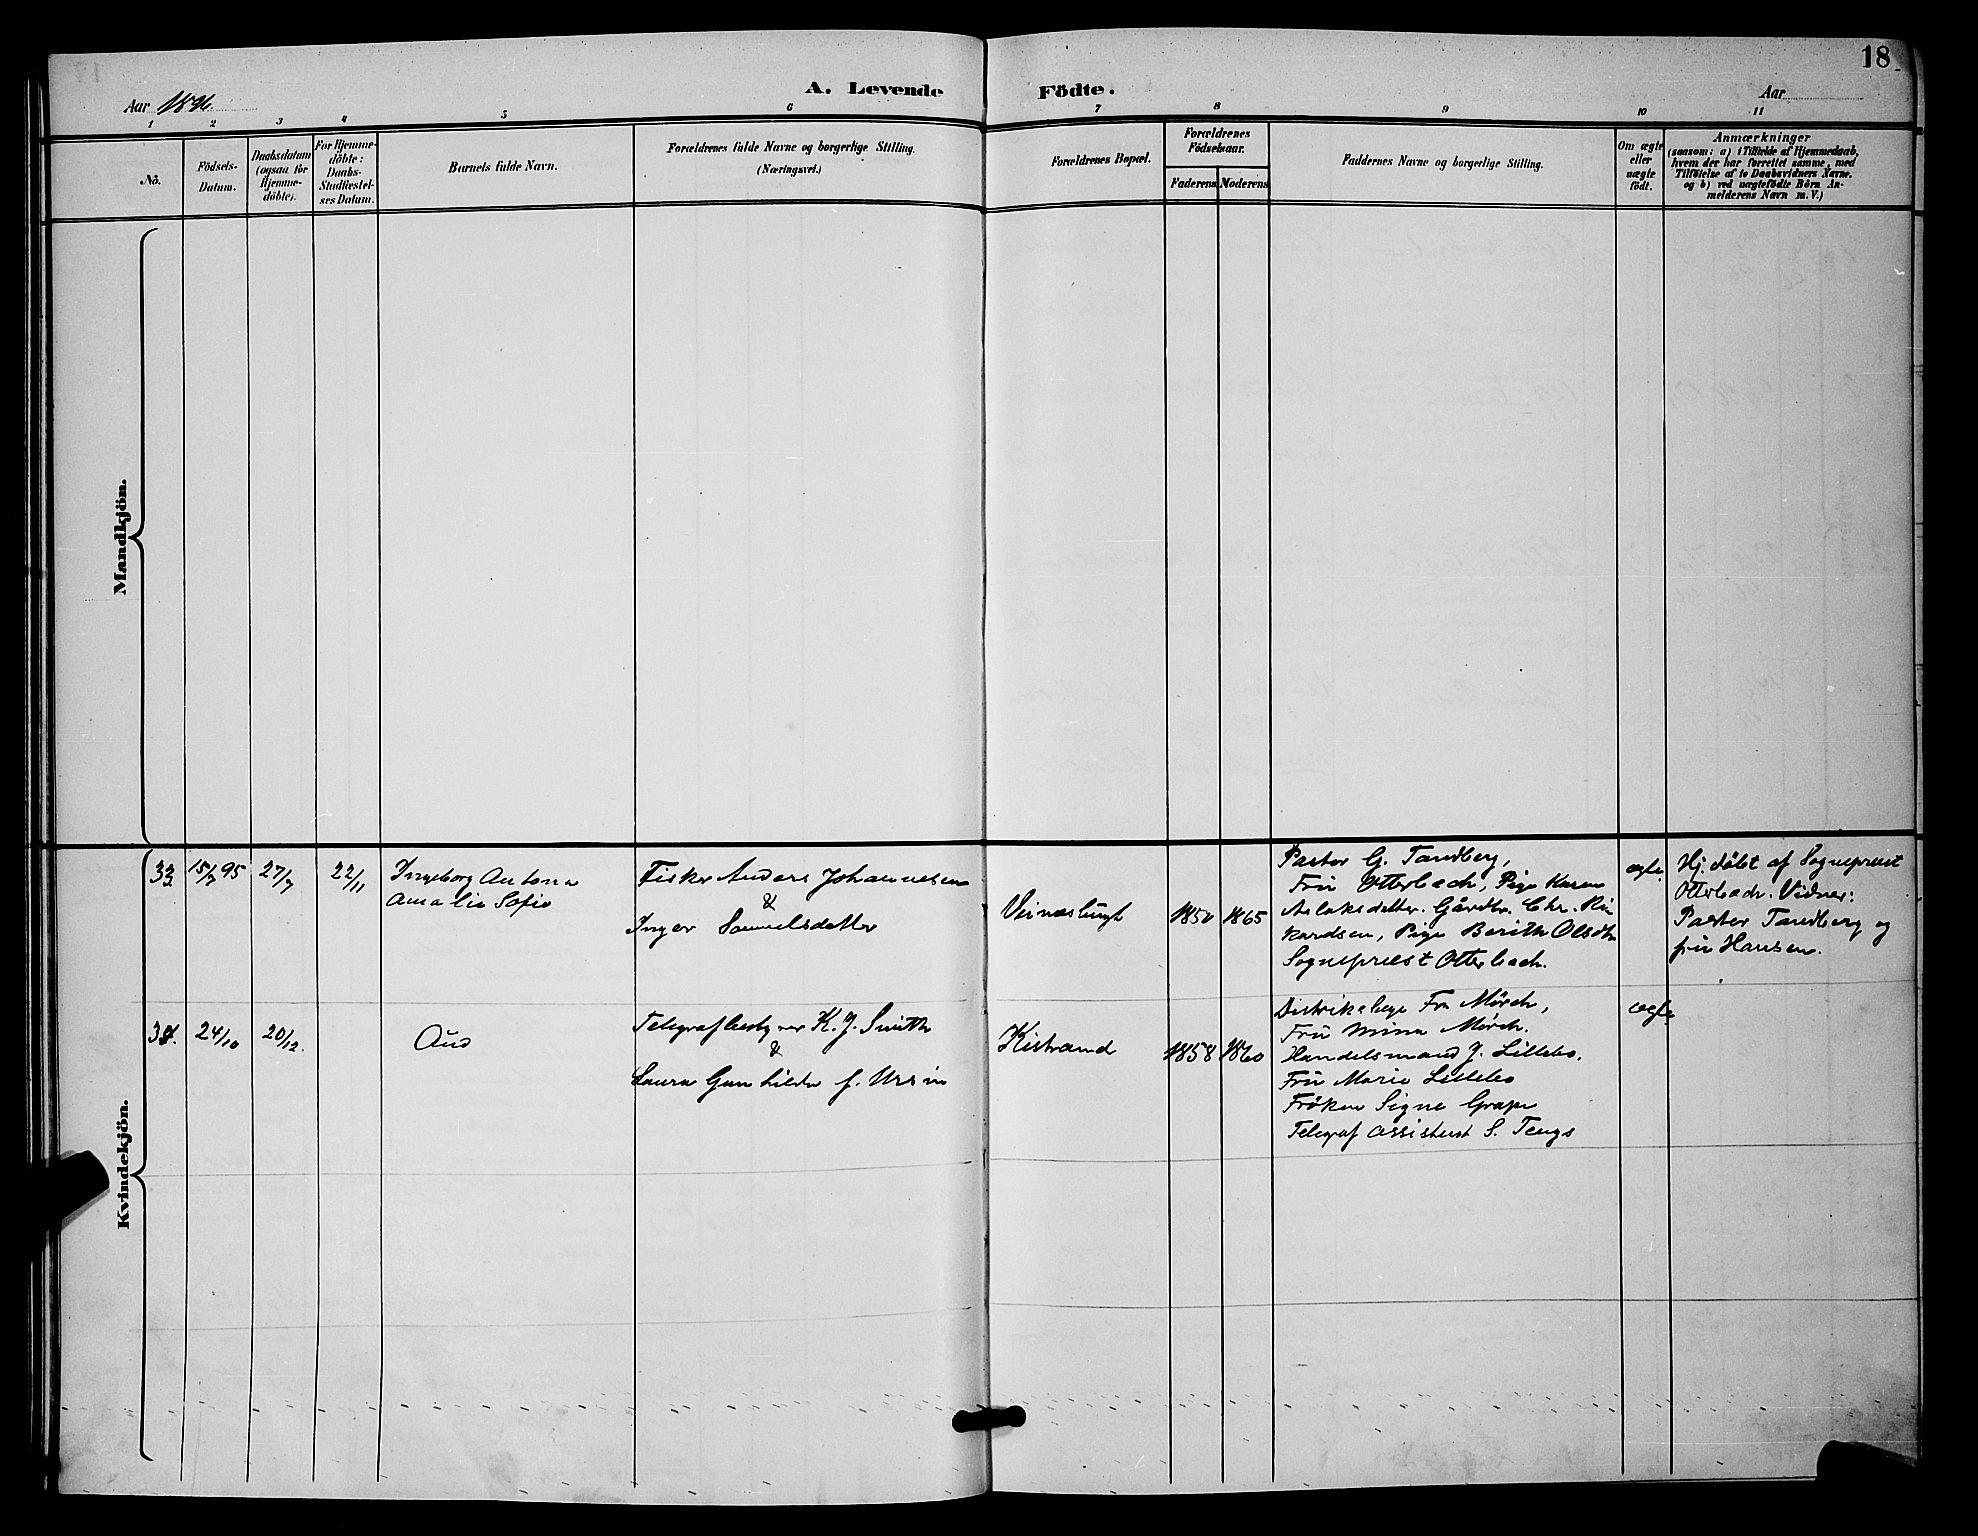 18
Aar 1896.
A. Levende Födte.
Aar
1 2 3 4 5 6 7 8 9 10 11
No.
Födsels-Datum.
Daabsdatum (ogsaa for Hjemme-döbte).
For Hjemme-döbte: Daabs-Stadfæstel-ses Datum.
Barnets fulde Navn.
Forældrenes fulde Navne og borgerlige Stilling.
(Næringsvei.)
Forældrenes Bopæl.
Forældrenes Födselsaar.
Faderens Moderens
Faddernes Navne og borgerlige Stilling.
Om ægte eller uægte födt.
Anmærkninger
(saasom: a) i Tilfælde af Hjemmedaab,
hvem der har forrettet samme, med
Tilföielse af to Daabsvidners Navne,
og b) ved uægtefödte Börn An-
melderens Navn m. V.)
Mandkjön.
Kvindekjön.
15/7 95
27/7
22/11
Ingeborg Antona
Amalie Sofie
Fisker Anders Johannesen
&
Inger Samuelsdatter
1850
1865
Pastor G. Tandberg,
Fru Otterbech, Pige Karen
Aslaksdatter. Gårdbr. Chr. Ri-
kardsen, Pige Berith Olsdtr
Sogneprest Otterbech.
ægte
Hj. døbt af Sogneprest
Otterbech. Vidner:
Pastor Tandberg og
fru Hansen.
24/10
20/12.
Aud
Telegrafbestyrer K. J. Smith
&
Laura Gunhilda f. Ursin
Kistrand
1858
1860
Distriktslæge Fr. Mörch,
Fru Mina Mörch.
Handelsmand J. Lillebo.
Fru Marie Lillebo
Fröken Signe Grape
Telegraf assistent S. Tengs
ægte